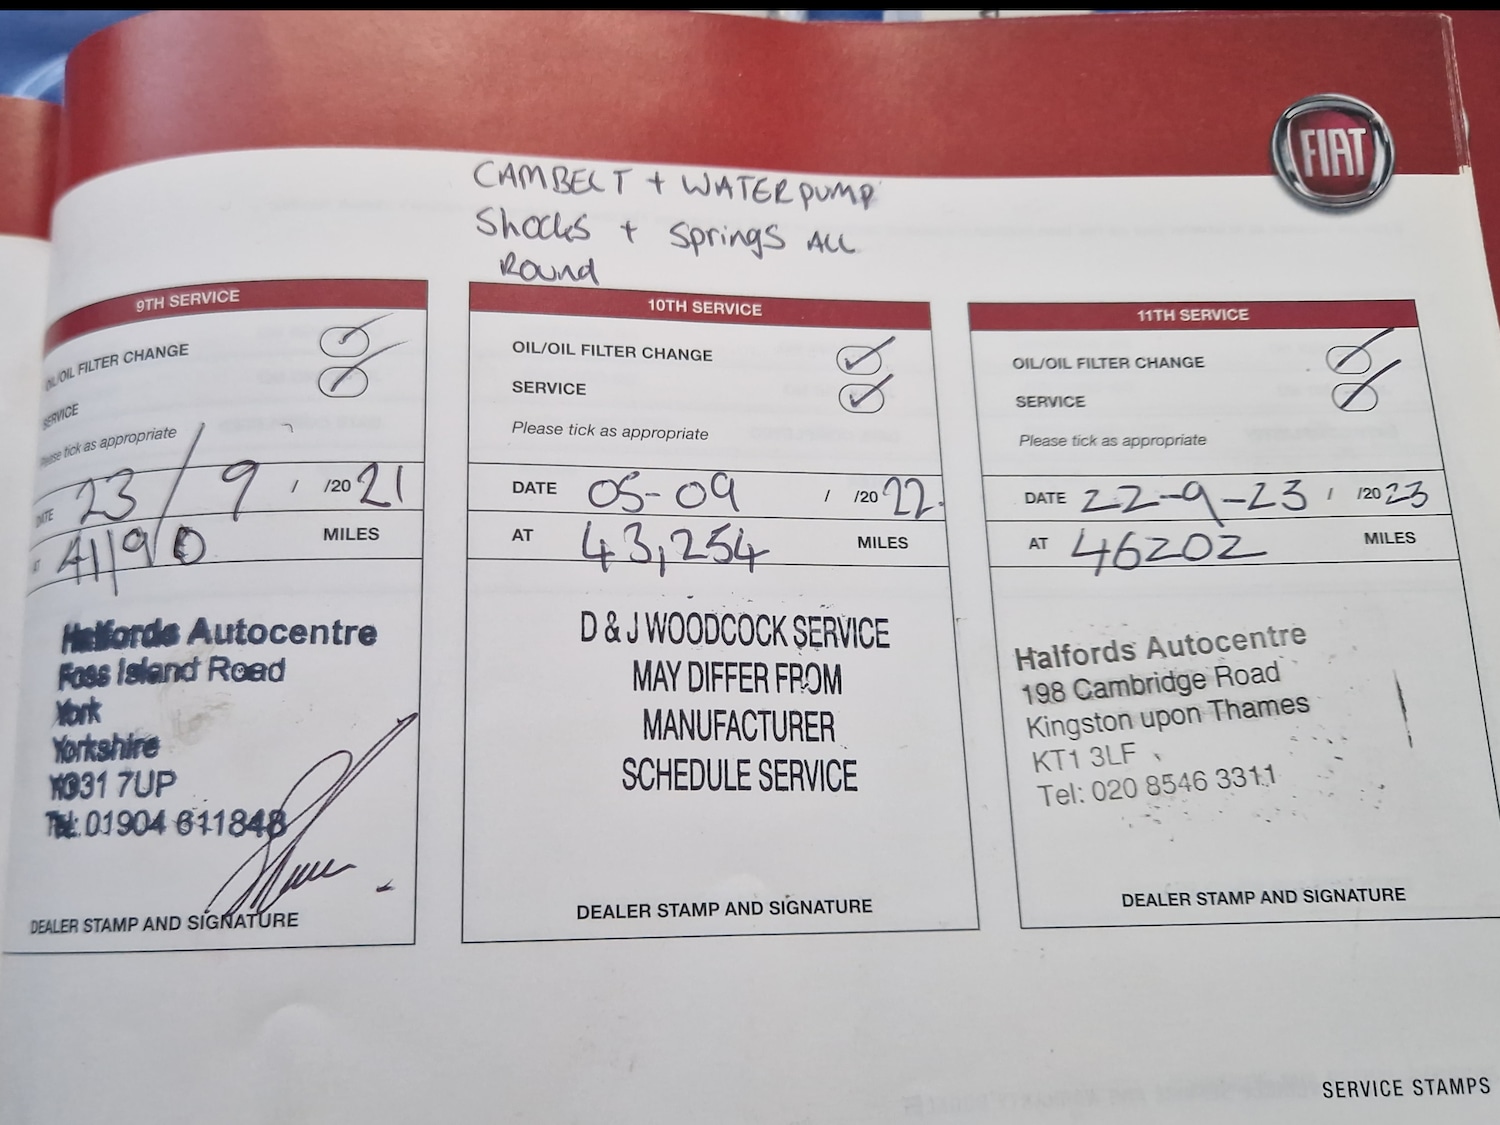 FIAT
CAMBELT + WATERPUMP
Shocks + Springs ALL
Round
9TH SERVICE
OIL/OIL FILTER CHANGE
SERVICE
Please tick as appropriate
DATE 23/9 / /2021
AT 41190 MILES
Halfords Autocentre
Foss Island Road
York
Yorkshire
YO31 7UP
Tel: 01904 611848
DEALER STAMP AND SIGNATURE
10TH SERVICE
OIL/OIL FILTER CHANGE
SERVICE
Please tick as appropriate
DATE 05-09 / /2022.
AT 43,254 MILES
D & J WOODCOCK SERVICE
MAY DIFFER FROM
MANUFACTURER
SCHEDULE SERVICE
DEALER STAMP AND SIGNATURE
11TH SERVICE
OIL/OIL FILTER CHANGE
SERVICE
Please tick as appropriate
DATE 22-9-23 / /2023
AT 46202 MILES
Halfords Autocentre
198 Cambridge Road
Kingston upon Thames
KT1 3LF
Tel: 020 8546 3311
DEALER STAMP AND SIGNATURE
SERVICE STAMPS